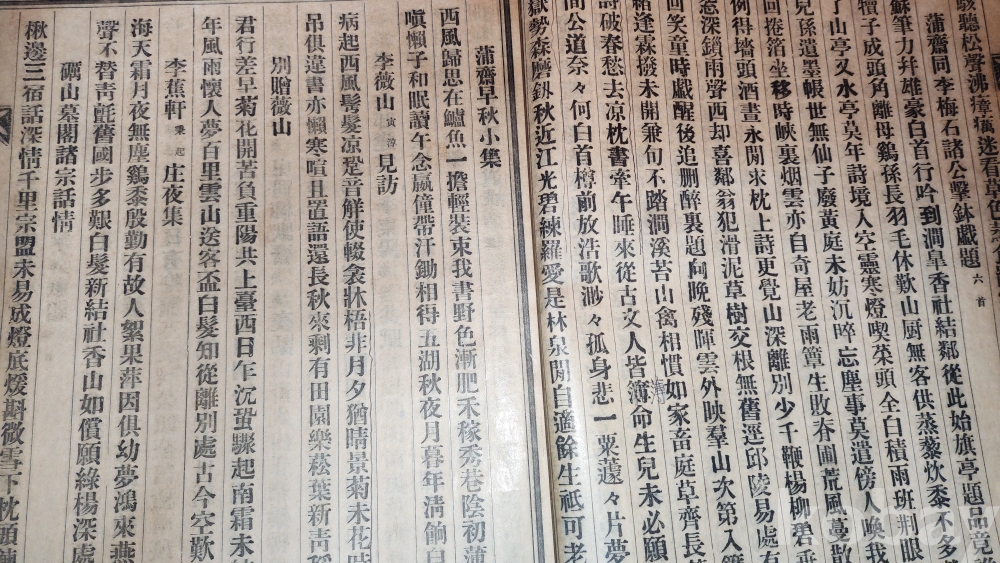 駭聽松聲沸瘴瘼迷看草色
蒲齋同李梅石諸公擊鉢戱題 六首
蘇筆力幷雄豪白首行吟到澗皐香社結鄰從此始旗亭題品竟
犢子成頭角離母鷄孫長羽毛休歎山厨無客供蒸藜炊黍不多
了山亭又水亭莫年詩境入空靈寒燈喫茱頭全白積雨班荆眼
兒孫遺墨帳世無仙子廢黃庭未妨沉晬忘塵事莫遣傍人喚我
回捲箔坐移時峽裏烟雲亦自奇屋老雨蕈生敗脊圃荒風蔓散
例得墻頭酒晝永閒求枕上詩更覺山深離別少千鞭楊柳碧
惹深鎖雨聲西却喜鄰翁犯滑泥草樹交根無舊逕邱陵易處有
回笑童時戱醒後追删醉裏題向晚殘暉雲外映羣山次第入
絡逢霖撥未開兼句不踏澗溪苔山禽相慣如家畜庭草齊長
詩破春愁去凉枕書牽午睡來從古文人皆薄命生兒未必願
間公道奈々何白首樽前放浩歌渺々孤身悲一粟蘧々片夢
嶽勢森磨釖秋近江光碧練羅愛是林泉閒自適餘生祗可老
蒲齋早秋小集
西風歸思在鱸魚一擔輕裝束我書野色漸肥禾稼秀巷陰初
嗔懶子和眠讀午念嬴僮帶汗鋤相得五湖秋夜月暮年淸餉自
李薇山 寅 見訪
病起西風鬂髮凉跫音解使輟衾牀梧非月夕猶晴景菊未花
吊俱違書亦懶寒暄且置語還長秋來剩有田園樂菘葉新靑
別贈薇山
君行差早菊花開苦負重陽共上臺西日乍沉蛩驟起南霜未
年風雨懷人夢百里雲山送客盃白髮知從離別處古今空歎
李蕉軒 秉起 庄夜集
海天霜月夜無塵鷄黍殷勤有故人絮果萍因俱幼夢鴻來燕
聲不替靑氈舊國步多艱白髮新結社香山如償願綠楊深處
礪山墓閣諸宗話情
楸邊三宿話深情千里宗盟未易成燈底煖斟微雪下枕頭